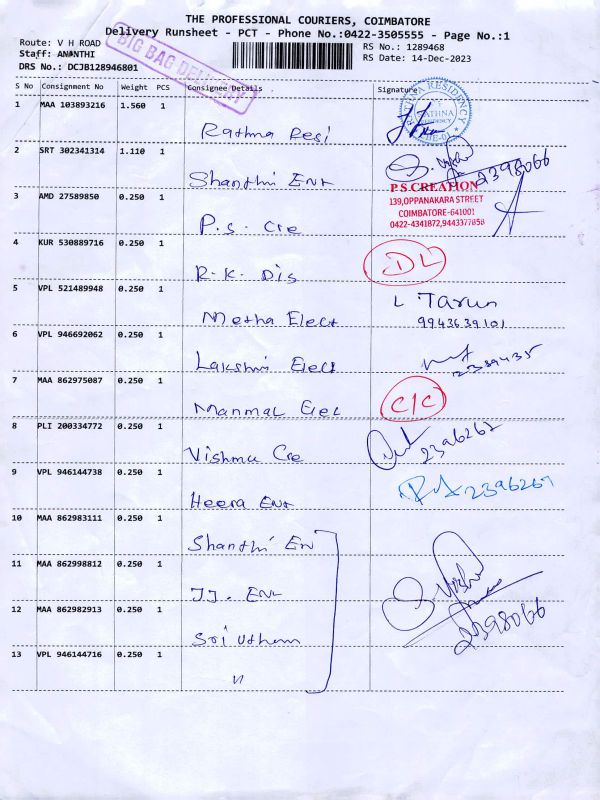 THE PROFESSIONAL COURIERS, COIMBATORE
Delivery Runsheet - PCT - Phone No.:0422-3505555 - Page No.:1
Route: V H ROAD
Staff: ANANTHI
DRS No.: DCJB128946801
BIG BAG DELIVERY
RS No.: 1289468
RS Date: 14-Dec-2023
S No Consignment No Weight PCS Consignee Details Signature
1 MAA 103893216 1.560 1
Rathna Resi
RATHNA RESIDENCY
2 SRT 302341314 1.110 1
Shanthi Ent
2398066
3 AMD 27589850 0.250 1
P.S. Cre
P.S.CREATION
139,OPPANAKARA STREET
COIMBATORE-641001
0422-4341872,9443377858
4 KUR 530889716 0.250 1
R.K. Dis
DL
5 VPL 521489948 0.250 1
Metha Elect
L Tarun
9943639101
6 VPL 946692062 0.250 1
Lakshmi Elect
2389435
7 MAA 862975087 0.250 1
Manmal Elec
C/C
8 PLI 200334772 0.250 1
Vishnu Cre
2396267
9 VPL 946144738 0.250 1
Heera Ent
2396267
10 MAA 862983111 0.250 1
Shanthi En
11 MAA 862998812 0.250 1
JJ. Ent
12 MAA 862982913 0.250 1
Sri Utham
2398066
13 VPL 946144716 0.250 1
"